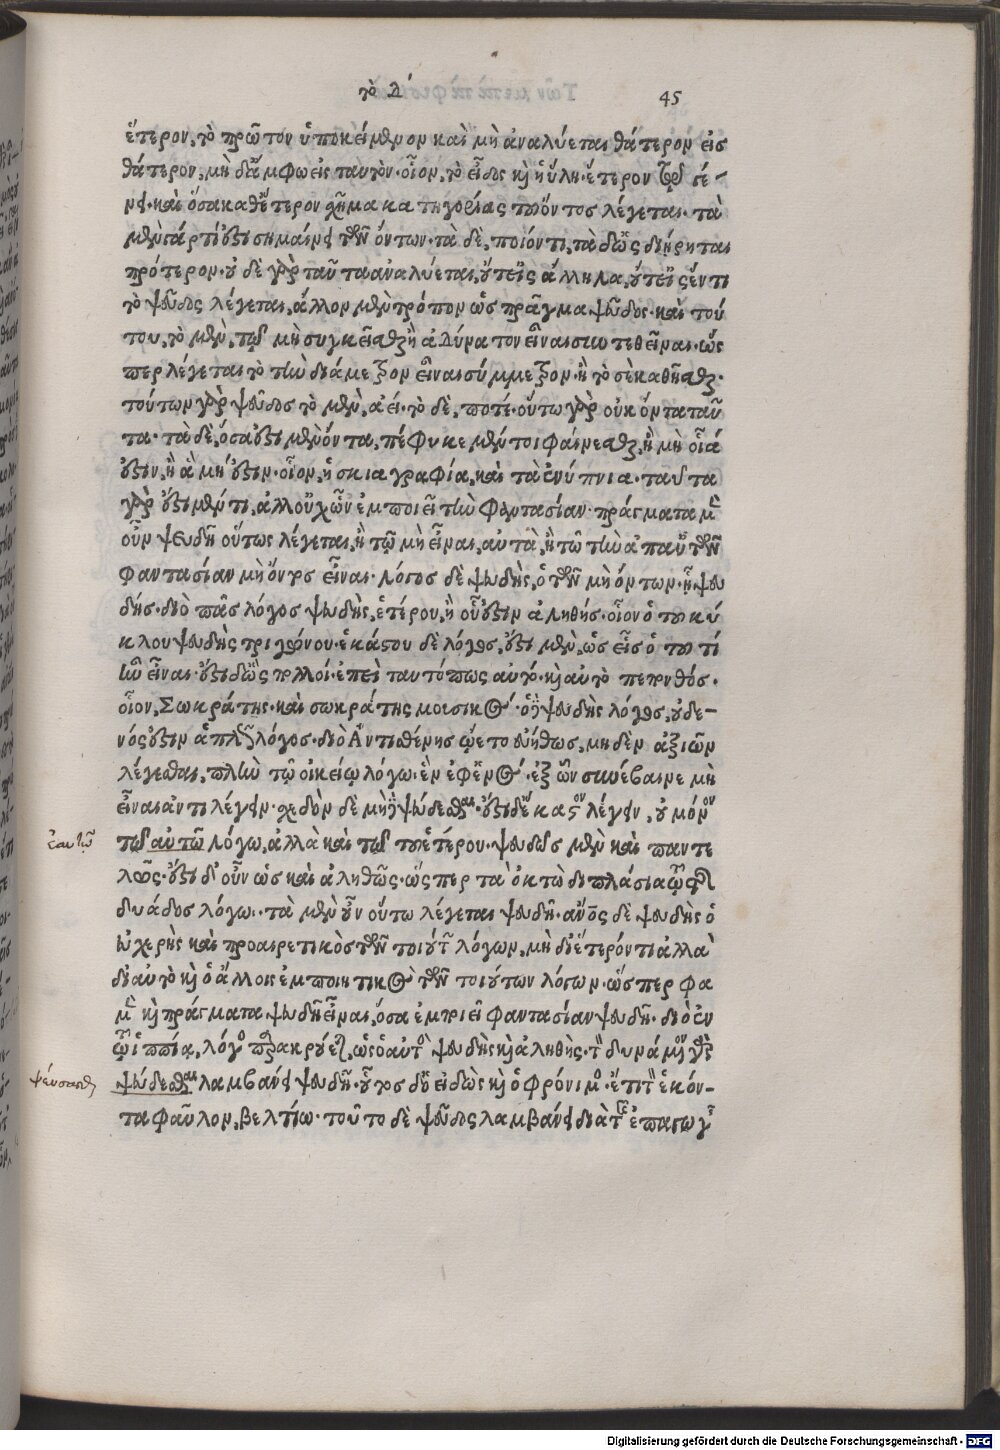 τὸ Δ´
45
ἕτερον, τὸ πρῶτον ὑποκείμενον καὶ μὴ ἀναλύεται θάτερον εἰς
θάτερον, μὴ δ' ἄμφω εἰς ταυτόν. οἷον, τὸ εἶδος καὶ ἡ ὕλη ἕτερον τῷ γέ-
νει. καὶ ὅσα καθ' ἕτερον σχῆμα κατηγορίας τοῦ ὄντος λέγεται. τὰ
μὲν γὰρ τί ἐστι σημαίνει τῶν ὄντων. τὰ δὲ, ποιόν τι, τὰ δ' ὡς διῄρηται
πρότερον. οὐδὲ γὰρ ταῦτα ἀναλύεται, οὔτ' εἰς ἄλληλα, οὔτ' εἰς ἕν τι
τὸ ψεῦδος λέγεται, ἄλλον μὲν τρόπον ὡς πρᾶγμα ψεῦδος. καὶ τού
του, τὸ μὲν, τῷ μὴ συγκεῖσθαι ἢ ἀδύνατον εἶναι συντεθεῖναι. ὥς
περ λέγεται τὸ τὴν διάμετρον εἶναι σύμμετρον. ἢ τὸ σὲ καθῆσθαι.
τούτων γὰρ ψεῦδος τὸ μὲν, ἀεί. τὸ δὲ, ποτέ. οὕτω γὰρ οὐκ ὄντα ταῦ
τα. τὰ δὲ, ὅσα ἐστὶ μὲν ὄντα, πέφυκε μέντοι φαίνεσθαι, ἢ μὴ οἷά
ἐστιν, ἢ ἃ μή ἐστιν. οἷον, ἡ σκιαγραφία, καὶ τὰ ἐνύπνια. ταῦτα
γὰρ ἐστι μέν τι, ἀλλ' οὐχ ὧν ἐμποιεῖ τὴν φαντασίαν. πράγματα μὲν
οὖν ψευδῆ οὕτως λέγεται, ἢ τῷ μὴ εἶναι, αὐτὰ, ἢ τῷ τὴν ἀπ' αὐτῶν
φαντασίαν μὴ ὄντος εἶναι. λόγος δὲ ψευδὴς, ὁ τῶν μὴ ὄντων. ᾗ ψευ
δής. διὸ πᾶς λόγος ψευδὴς, ἑτέρου, ἢ οὗ ἐστιν ἀληθής. οἷον ὁ τοῦ κύ
κλου ψευδὴς τριγώνου. ἑκάστου δὲ λόγος, ἔστι μὲν, ὡς εἷς ὁ τοῦ τί
ἦν εἶναι. ἔστι δ' ὡς πολλοί. ἐπεὶ ταυτό πως αὐτὸ. καὶ αὐτὸ πεπονθός.
οἷον, Σωκράτης. καὶ σωκράτης μουσικός. ὁ δὲ ψευδὴς λόγος, οὐδε-
νός ἐστιν ἁπλῶς λόγος. διὸ Ἀντισθένης ᾤετο εὐήθως, μηδὲν ἀξιῶν
λέγεσθαι, πλὴν τῷ οἰκείῳ λόγῳ. ἓν ἐφ' ἑνός. ἐξ ὧν συνέβαινε μὴ
εἶναι ἀντιλέγειν. σχεδὸν δὲ μηδὲ ψεύδεσθαι. ἔστι δ' ἕκαστον λέγειν, οὐ μόνον
τῷ αὐτῷ λόγῳ, ἀλλὰ καὶ τῷ τοῦ ἑτέρου. ψευδῶς μὲν καὶ παντε
λῶς. ἔστι δ' οὖν ὡς καὶ ἀληθῶς. ὥσπερ τὰ ὀκτὼ διπλάσια τῷ τῆς
δυάδος λόγῳ. τὰ μὲν οὖν οὕτω λέγεται ψευδῆ. ἄνθρωπος δὲ ψευδὴς ὁ
εὐχερὴς καὶ προαιρετικὸς τῶν τοιούτων λόγων, μὴ δι' ἕτερόν τι ἀλλὰ
δι' αὐτὸ καὶ ὁ ἄλλοις ἐμποιητικὸς τῶν τοιούτων λόγων. ὥσπερ φα
μὲν καὶ πράγματα ψευδῆ εἶναι, ὅσα ἐμποιεῖ φαντασίαν ψευδῆ. διὸ ἐν
τῷ ἱππίᾳ, λόγος παρακρούεται, ὡς ὁ αὐτὸς ψευδὴς καὶ ἀληθής. τὸν δυνάμενον γὰρ
ψεύδεσθαι λαμβάνει ψευδῆ. οὗτος δ' ὁ εἰδὼς καὶ ὁ φρόνιμος. ἔτι τὸν ἑκόν-
τα φαῦλον, βελτίω. τοῦτο δὲ ψεῦδος λαμβάνει διὰ τῆς ἐπαγωγῆς
ἑαυτῷ
ψεύσασθαι
Digitalisierung gefördert durch die Deutsche Forschungsgemeinschaft - DFG